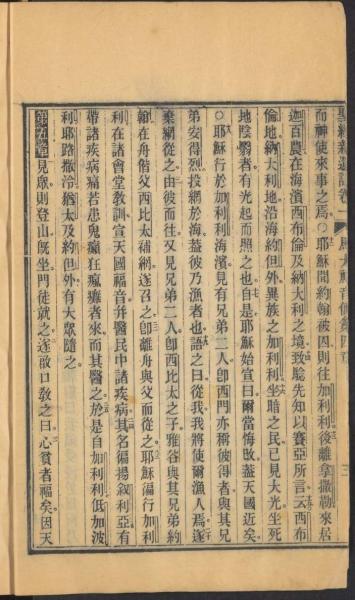 聖經新遺詔卷一　馬太福音傳第四章　三
而神使來事之焉○耶穌聞約翰被囚則往加利利後離拿撒勒來居
迦百農在海濱西布倫及納大利之境致驗先知以賽亞所言云西布
倫地納大利地沿海約但外異族之加利利坐暗之民已見大光生死
地陰翳者有光起而照之也自是耶穌始宣曰爾當悔改蓋天國近矣
○耶穌行於加利利海濱見有兄弟二人卽西門亦稱彼得者與其兄
弟安得烈投網於海蓋彼乃漁者也語之曰從我我將使爾漁人焉遂
棄網從之由彼而往又見兄弟二人卽西比太之子雅谷與其兄弟約
翰在舟偕父西比太補網遂召之卽離舟與父而從之耶穌徧行加利
利在諸會堂教訓宣天國福音并醫民中諸疾病其名徧揚叙利亞有
帶諸疾病痛苦患鬼癲狂瘋癱者來而其醫之於是自加利利低加波
利耶路撒冷猶太及約但外有大衆隨之
第五章見衆則登山旣坐門徒就之遂啟口教之曰心貧者福矣因天